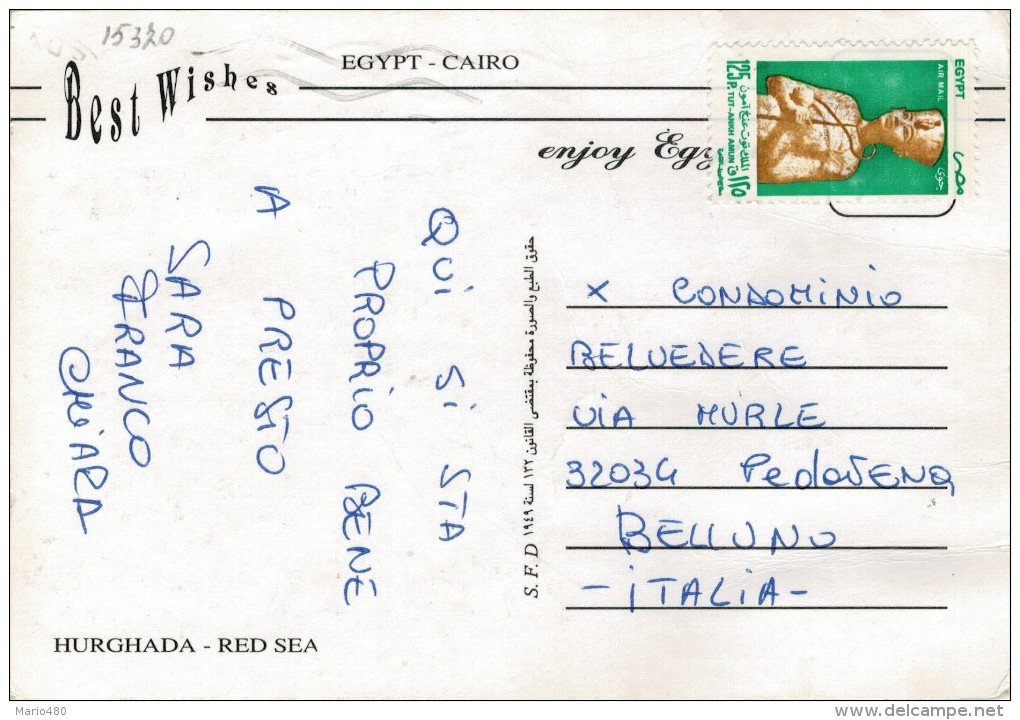 15320
EGYPT - CAIRO
Best Wishes
enjoy Egy
EGYPT
AIR MAIL
مصر
جوى
125P. TUT-ANKH AMUN
الملك توت عنخ آمون
١٢٥ ق
QUI SI STA
PROPRIO BENE
A PRESTO
SARA
FRANCO
CHIARA
حقوق الطبع والصورة محفوظة بمقتضى القانون ١٣٢ لسنة ١٩٤٩ S. F. D
X CONDOMINIO
BELVEDERE
VIA MURLE
32034 PedaVENA
BELLUNO
- ITALIA -
HURGHADA - RED SEA
Mario480
www.delcampe.net